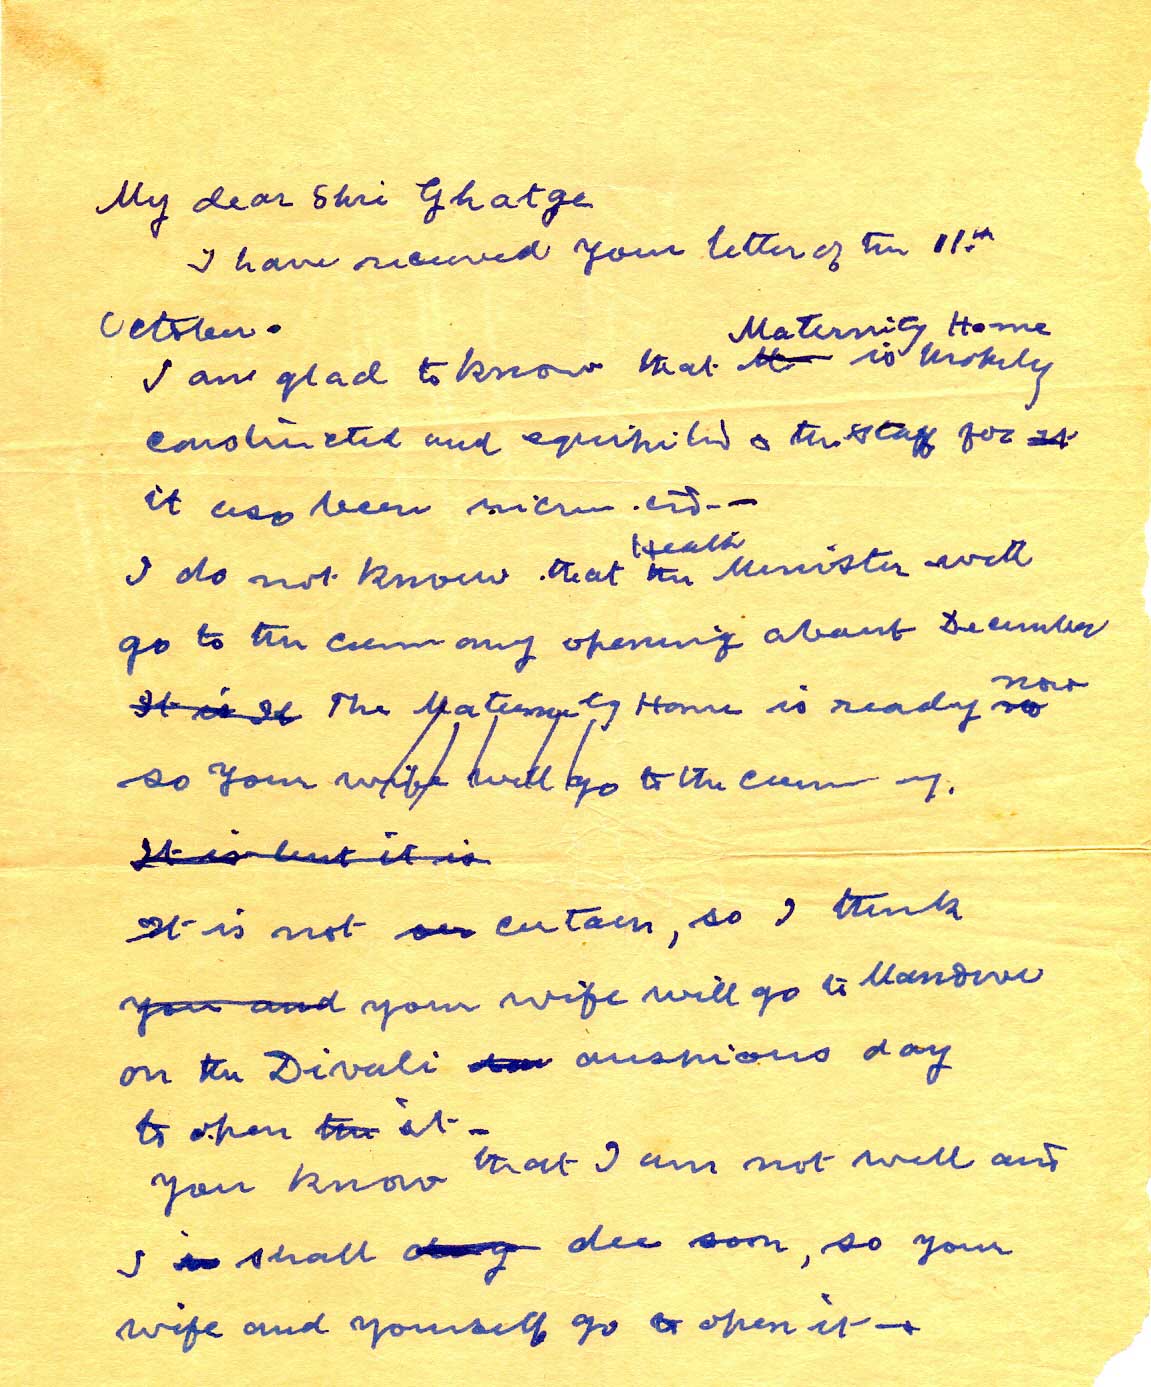 My dear Shri Ghatge
I have received your letter of the 11th
October.
Maternity Home
I am glad to know that M is properly
constructed and equipped & the staff for it
it also been
Health
I do not know that the Minister will
go to the ceremony opening about December
now
It is It The Maternity Home is ready so
so your wife will go to the ceremony.
It is but it is
It is not certain, so I think
you and your wife will go to Mandwe
on the Divali auspious day
to open the it -
You know that I am not well and
I shall die soon, so your
wife and yourself go to open it -